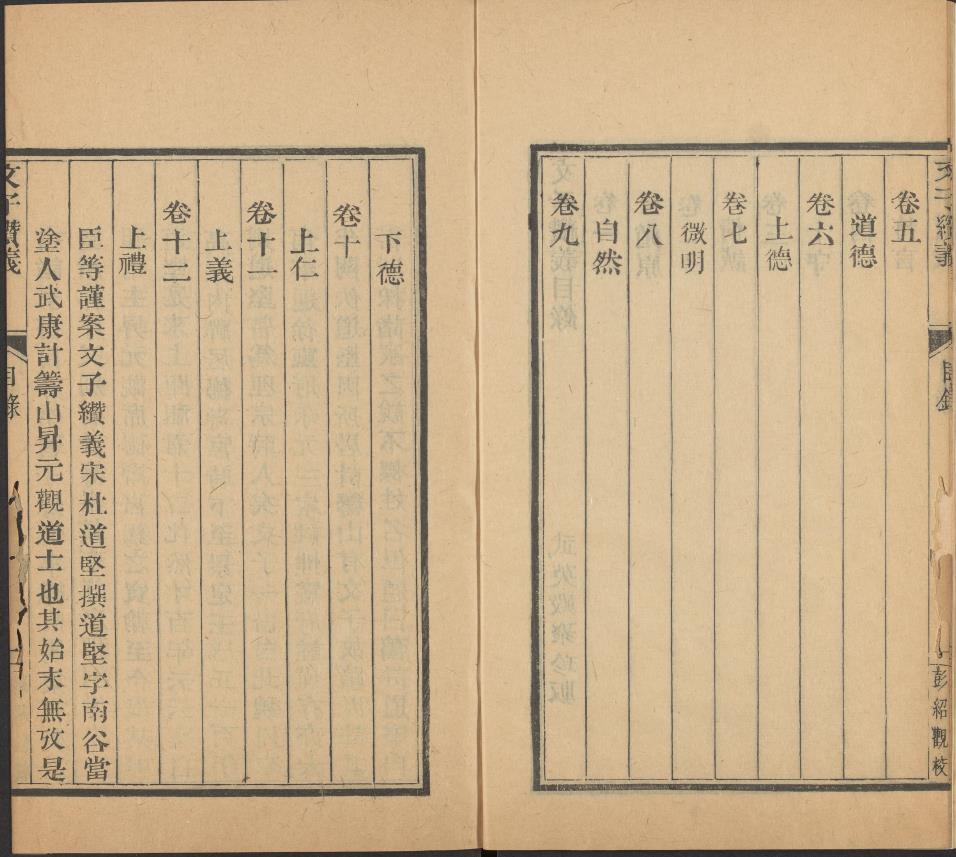 文子纘義
目錄
彭紹觀校
卷五
道德
卷六
上德
卷七
微明
卷八
自然
卷九
下德
卷十
上仁
卷十一
上義
卷十二
上禮
臣等謹案文子纘義宋杜道堅撰道堅字南谷當
塗人武康計籌山昇元觀道士也其始末無攷是
文子纘義
目錄